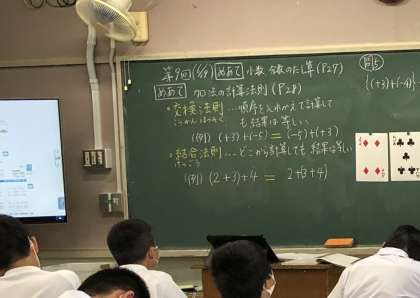 第9回(4/19) めあて 小数、分数のたし算(P27)
めあて 加法の計算法則(P28)
・交換法則…順序を入れかえて計算して
こうかんほうそく
も結果は等しい
(例) (+3)+(-5) = (-5)+(+3)
・結合法則…どこから計算しても結果は等しい
けつごう
(例) (2+3)+4 = 2+(3+4)
問5
{(+3)+(-4)}